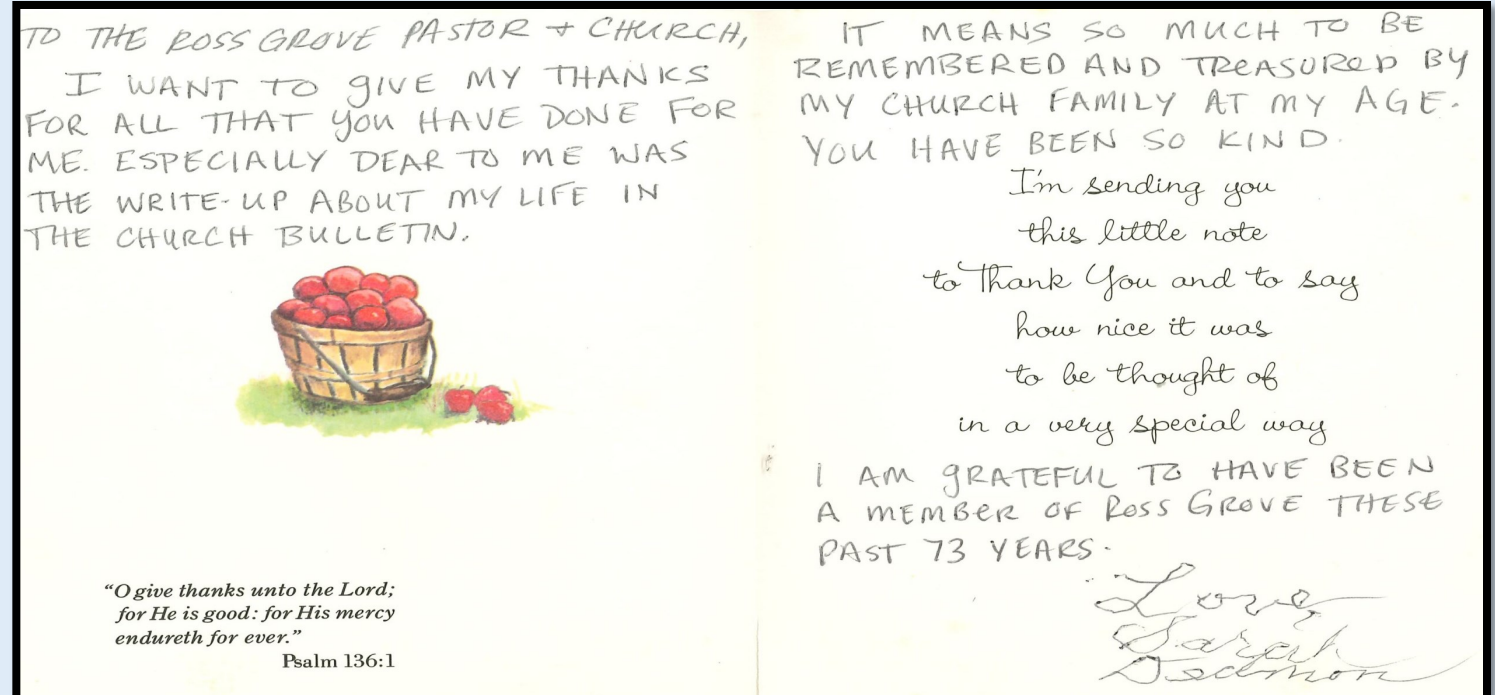 TO THE ROSS GROVE PASTOR + CHURCH,
I WANT TO GIVE MY THANKS
FOR ALL THAT YOU HAVE DONE FOR
ME. ESPECIALLY DEAR TO ME WAS
THE WRITE-UP ABOUT MY LIFE IN
THE CHURCH BULLETIN.
"O give thanks unto the Lord;
for He is good: for His mercy
endureth for ever."
Psalm 136:1
IT MEANS SO MUCH TO BE
REMEMBERED AND TREASURED BY
MY CHURCH FAMILY AT MY AGE.
YOU HAVE BEEN SO KIND.
I'm sending you
this little note
to Thank You and to say
how nice it was
to be thought of
in a very special way
I AM GRATEFUL TO HAVE BEEN
A MEMBER OF ROSS GROVE THESE
PAST 73 YEARS.
Love,
Sarah
Dedmon